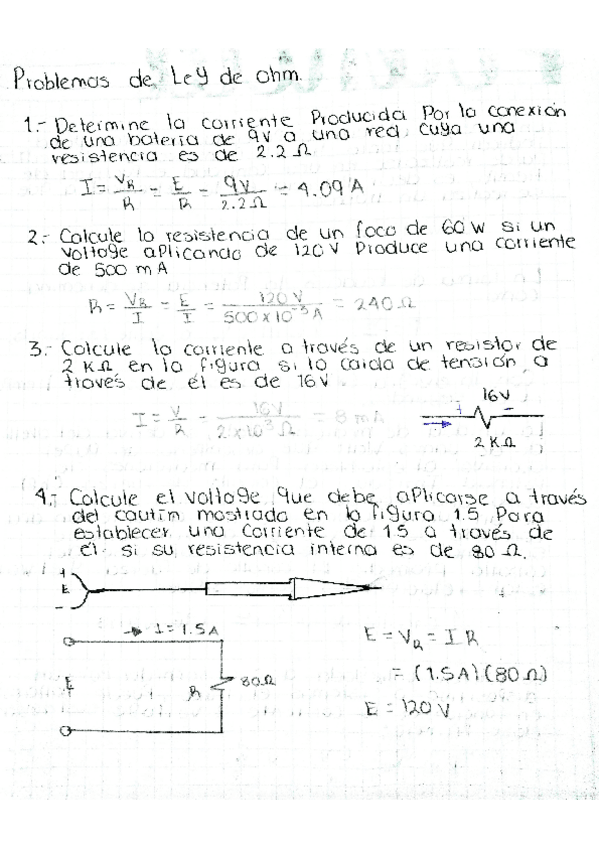 Problemas de Ley de ohm.
1.- Determine la corriente Producida Por la conexión
de una bateria de 9V a una red, cuya una
resistencia es de 2.2 Ω
I = V_R/R = E/R = 9V/2.2Ω = 4.09 A
2.- Calcule la resistencia de un foco de 60 W si un
voltage aplicando de 120 V Produce una corriente
de 500 mA
R = V_R/I = E/I = 120 V/500 x 10^-3 A = 240 Ω
3.- Calcule la corriente a través de un resistor de
2 KΩ en la figura si la caida de tensión, a
través de él es de 16 V
I = V/R = 16V/2 x 10^3 Ω = 8 mA
16V
+ -
2 KΩ
4.- Calcule el voltage que debe aplicarse a través
del cautim mostrado en la figura 1.5 Para
establecer una Corriente de 1.5 a través de
él si su resistencia interna es de 80 Ω.
+
E
-
I = 1.5A
E R 80Ω
E = V_R = I R
= (1.5A)(80Ω)
E = 120 V